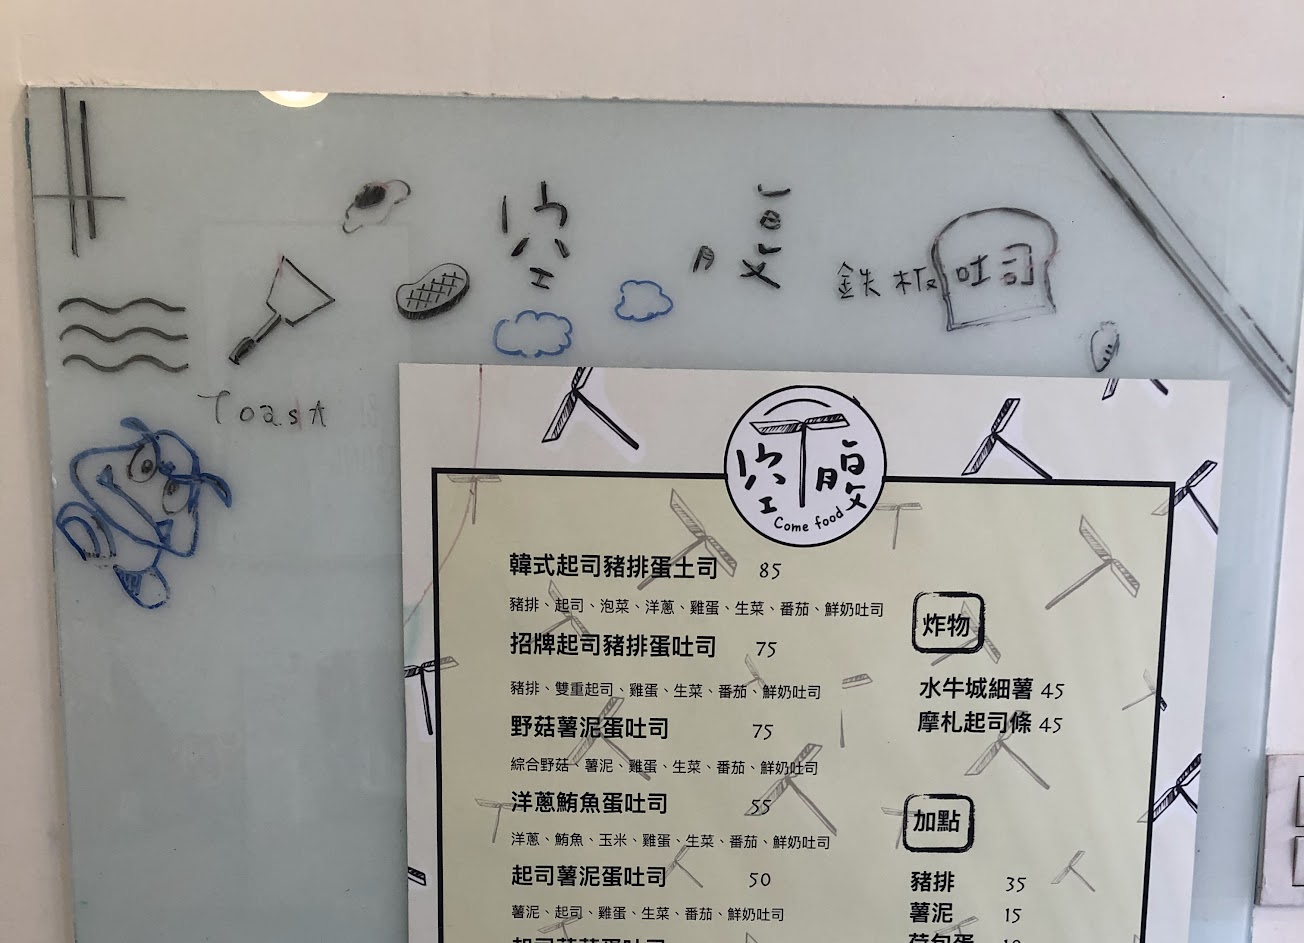 空腹
鉄板吐司
Toast
空腹
Come food
韓式起司豬排蛋土司 85
豬排、起司、泡菜、洋蔥、雞蛋、生菜、番茄、鮮奶吐司
招牌起司豬排蛋吐司 75
豬排、雙重起司、雞蛋、生菜、番茄、鮮奶吐司
野菇薯泥蛋吐司 75
綜合野菇、薯泥、雞蛋、生菜、番茄、鮮奶吐司
洋蔥鮪魚蛋吐司 55
洋蔥、鮪魚、玉米、雞蛋、生菜、番茄、鮮奶吐司
起司薯泥蛋吐司 50
薯泥、起司、雞蛋、生菜、番茄、鮮奶吐司
炸物
水牛城細薯 45
摩札起司條 45
加點
豬排 35
薯泥 15